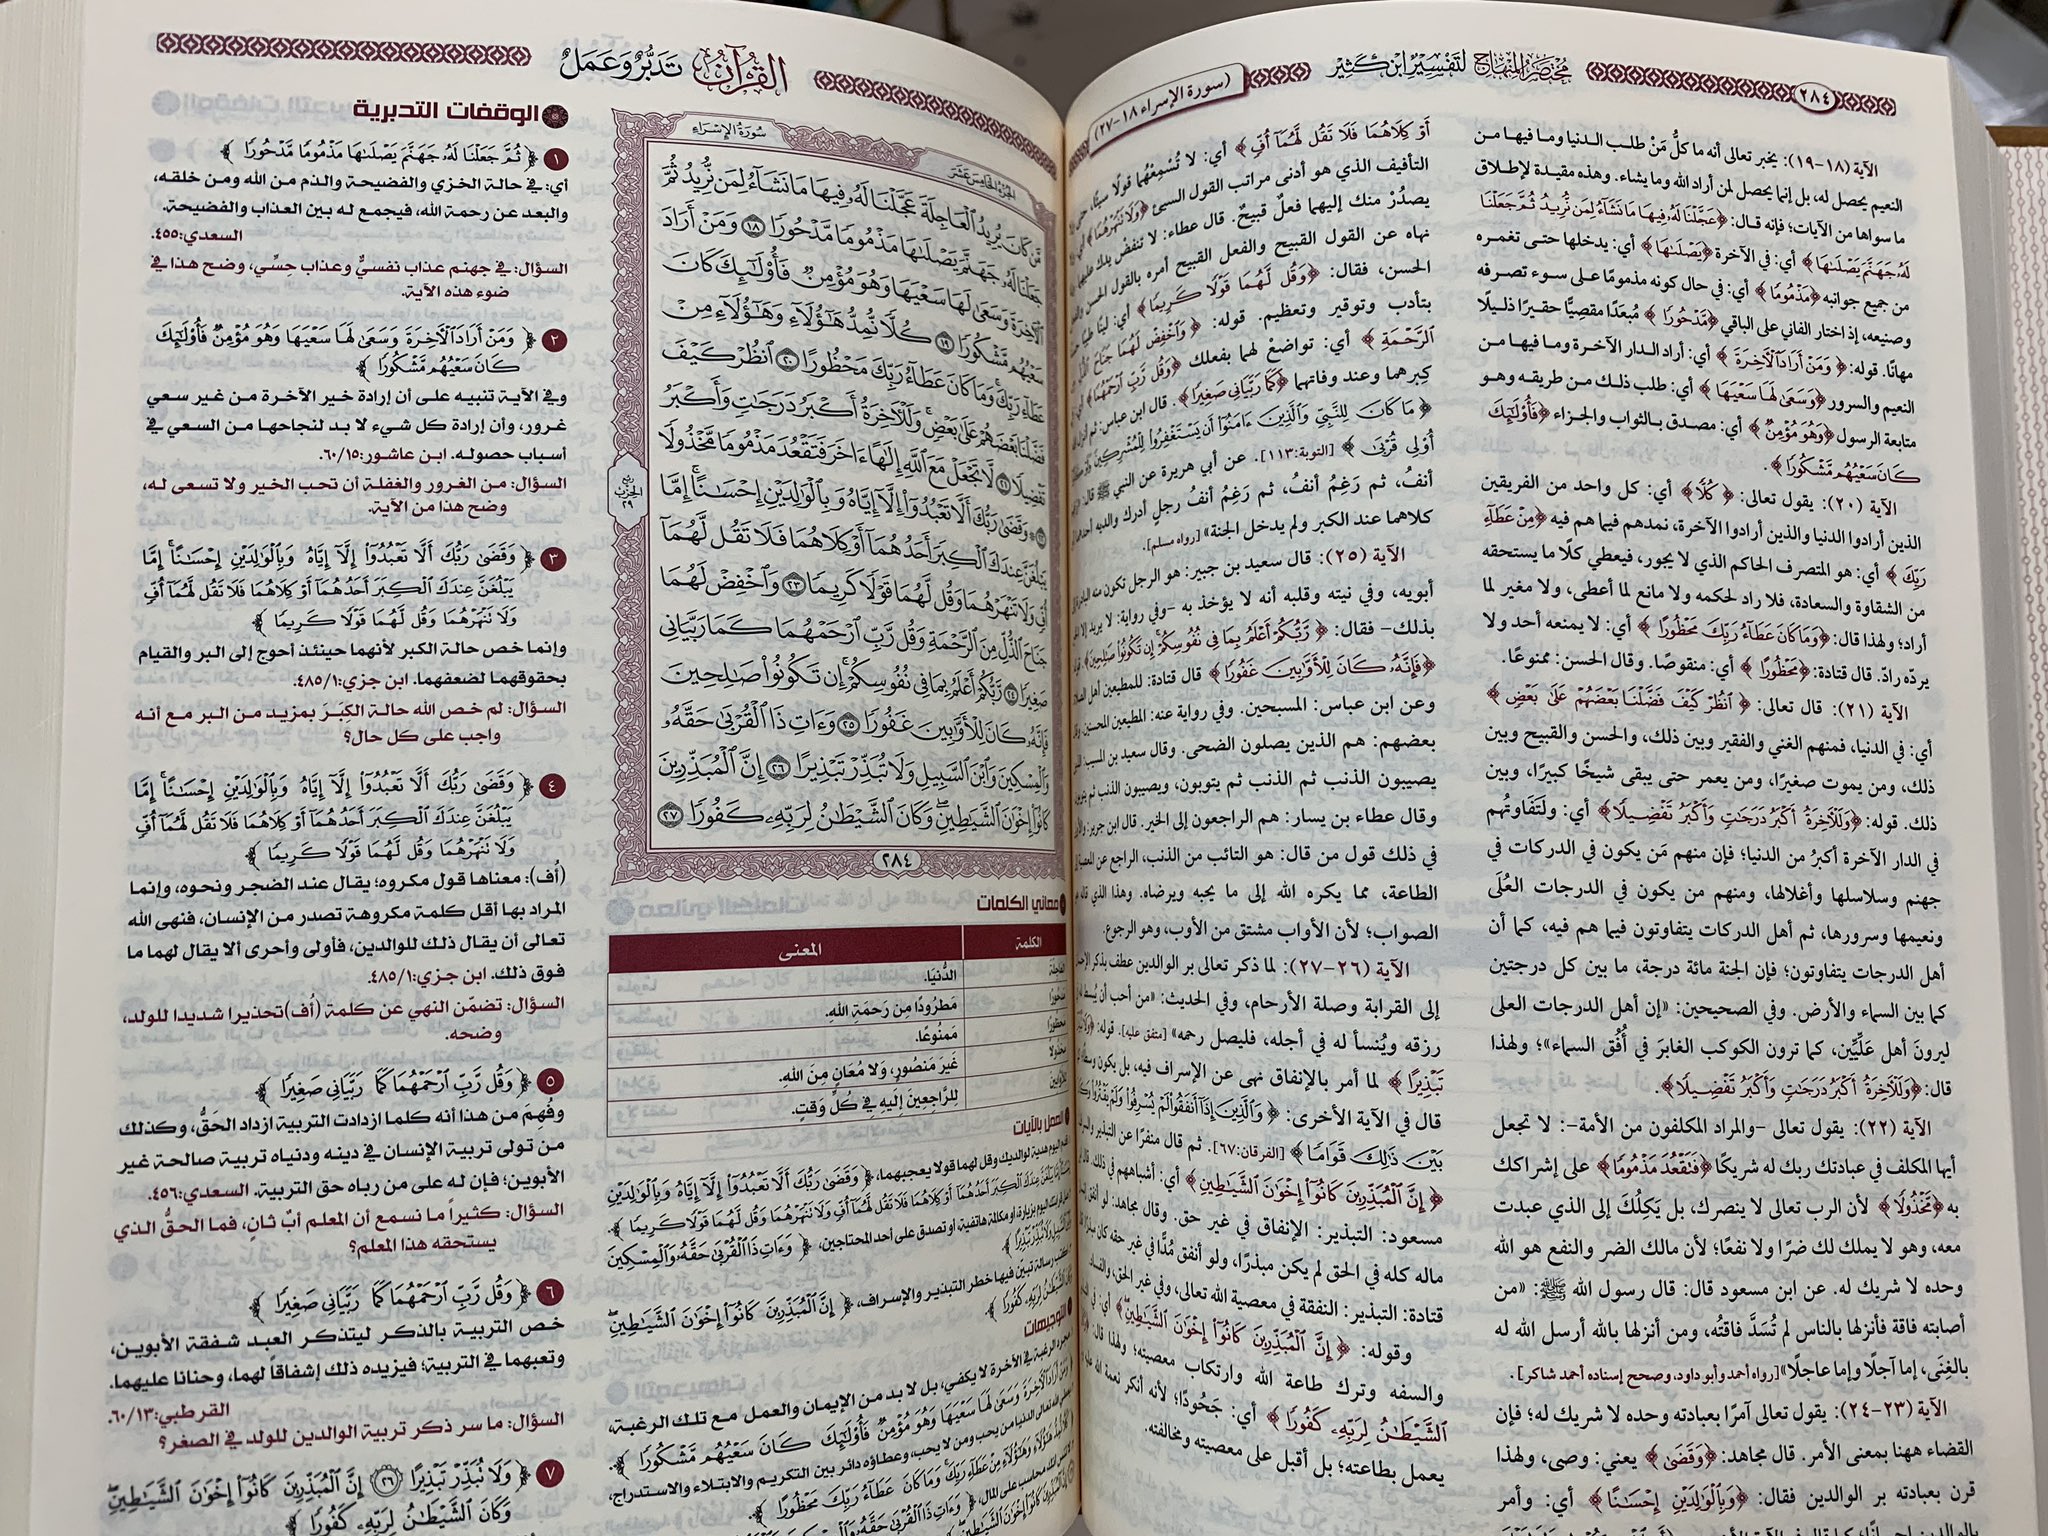 ٢٨٤
مختصر المنهاج لتفسير ابن كثير
(سورة الإسراء ١٨-٢٧)
الآية (١٨-١٩): يخبر تعالى أنه ما كلُّ مَنْ طلب الدنيا وما فيها من
النعيم يحصل له، بل إنما يحصل لمن أراد الله وما يشاء. وهذه مقيدة لإطلاق
ما سواها من الآيات؛ فإنه قال: ﴿عَجَّلْنَا لَهُۥ فِيهَا مَا نَشَآءُ لِمَن نُّرِيدُ ثُمَّ جَعَلْنَا
لَهُۥ جَهَنَّمَ يَصْلَىٰهَا﴾ أي: في الآخرة ﴿يَصْلَىٰهَا﴾ أي: يدخلها حتى تغمره
من جميع جوانبه ﴿مَذْمُومًا﴾ أي: في حال كونه مذمومًا على سوء تصرفه
وصنيعه، إذ اختار الفاني على الباقي ﴿مَّدْحُورًا﴾ مُبعَدًا مقصيًّا حقيرًا ذليلًا
مهانًا. قوله: ﴿وَمَنْ أَرَادَ ٱلْأَخِرَةَ﴾ أي: أراد الدار الآخرة وما فيها من
النعيم والسرور ﴿وَسَعَىٰ لَهَا سَعْيَهَا﴾ أي: طلب ذلك من طريقه وهو
متابعة الرسول ﴿وَهُوَ مُؤْمِنٌ﴾ أي: مصدق بالثواب والجزاء ﴿فَأُو۟لَـٰٓئِكَ
كَانَ سَعْيُهُم مَّشْكُورًا﴾.
الآية (٢٠): يقول تعالى: ﴿كُلًّا﴾ أي: كل واحد من الفريقين
الذين أرادوا الدنيا والذين أرادوا الآخرة، نمدهم فيما هم فيه ﴿مِنْ عَطَآءِ
رَبِّكَ﴾ أي: هو المتصرف الحاكم الذي لا يجور، فيعطي كلًا ما يستحقه
من الشقاوة والسعادة، فلا راد لحكمه ولا مانع لما أعطى، ولا مغير لما
أراد؛ ولهذا قال: ﴿وَمَا كَانَ عَطَآءُ رَبِّكَ مَحْظُورًا﴾ أي: لا يمنعه أحد ولا
يردّه رادّ. قال قتادة: ﴿مَحْظُورًا﴾ أي: منقوصًا. وقال الحسن: ممنوعًا.
الآية (٢١): قال تعالى: ﴿ٱنظُرْ كَيْفَ فَضَّلْنَا بَعْضَهُمْ عَلَىٰ بَعْضٍ﴾
أي: في الدنيا، فمنهم الغني والفقير وبين ذلك، والحسن والقبيح وبين
ذلك، ومن يموت صغيرًا، ومن يعمر حتى يبقى شيخًا كبيرًا، وبين
ذلك. قوله: ﴿وَلَلْأَخِرَةُ أَكْبَرُ دَرَجَـٰتٍ وَأَكْبَرُ تَفْضِيلًا﴾ أي: ولَتفاوتُهم
في الدار الآخرة أكبرُ من الدنيا؛ فإن منهم مَن يكون في الدركات في
جهنم وسلاسلها وأغلالها، ومنهم من يكون في الدرجات العُلَى
ونعيمها وسرورها، ثم أهل الدركات يتفاوتون فيما هم فيه، كما أن
أهل الدرجات يتفاوتون؛ فإن الجنة مائة درجة، ما بين كل درجتين
كما بين السماء والأرض. وفي الصحيحين: «إن أهل الدرجات العلى
ليرون أهل عِلِّيِّين، كما ترون الكوكب الغابرَ في أُفُق السماء»؛ ولهذا
قال: ﴿وَلَلْأَخِرَةُ أَكْبَرُ دَرَجَـٰتٍ وَأَكْبَرُ تَفْضِيلًا﴾.
الآية (٢٢): يقول تعالى -والمراد المكلفون من الأمة-: لا تجعل
أيها المكلف في عبادتك ربك له شريكًا ﴿فَتَقْعُدَ مَذْمُومًا﴾ على إشراكك
به ﴿مَّخْذُولًا﴾ لأن الرب تعالى لا ينصرك، بل يَكِلُكَ إلى الذي عبدت
معه، وهو لا يملك لك ضرًا ولا نفعًا؛ لأن مالك الضر والنفع هو الله
وحده لا شريك له. عن ابن مسعود قال: قال رسول الله ﷺ: «من
أصابته فاقة فأنزلها بالناس لم تُسَدَّ فاقتُه، ومن أنزلها بالله أرسل الله له
بالغِنَى، إما آجلًا وإما عاجلًا» [رواه أحمد وأبو داود، وصحح إسناده أحمد شاكر].
الآية (٢٣-٢٤): يقول تعالى آمرًا بعبادته وحده لا شريك له؛ فإن
القضاء ههنا بمعنى الأمر. قال مجاهد: ﴿وَقَضَىٰ﴾ يعني: وصى، ولهذا
قرن بعبادته بر الوالدين فقال: ﴿وَبِٱلْوَٰلِدَيْنِ إِحْسَـٰنًا﴾ أي: وأمر
أَوْ كِلَاهُمَا فَلَا تَقُل لَّهُمَآ أُفٍّ﴾ أي: لا تُسْمِعْهُما قولًا سيئًا، حتى
التأفيف الذي هو أدنى مراتب القول السيئ ﴿وَلَا تَنْهَرْهُمَا﴾
يصدُرْ منك إليهما فعلٌ قبيحٌ. قال عطاء: لا تنفضْ يدك عليهما
نهاه عن القول القبيح والفعل القبيح أمره بالقول الحسن والفعل
الحسن، فقال: ﴿وَقُل لَّهُمَا قَوْلًا كَرِيمًا﴾ أي: لينًا طيبًا
بتأدب وتوقير وتعظيم. قوله: ﴿وَٱخْفِضْ لَهُمَا جَنَاحَ ٱلذُّلِّ مِنَ
ٱلرَّحْمَةِ﴾ أي: تواضعْ لهما بفعلك ﴿وَقُل رَّبِّ ٱرْحَمْهُمَا﴾ أي: في
كِبرهما وعند وفاتهما ﴿كَمَا رَبَّيَانِى صَغِيرًا﴾. قال ابن عباس: ثم أنزل
﴿مَا كَانَ لِلنَّبِىِّ وَٱلَّذِينَ ءَامَنُوٓا۟ أَن يَسْتَغْفِرُوا۟ لِلْمُشْرِكِينَ وَلَوْ كَانُوٓا۟
أُو۟لِى قُرْبَىٰ﴾ [التوبة:١١٣]. عن أبي هريرة عن النبي ﷺ قال:
أنفُ، ثم رَغِمُ أنفُ، ثم رَغِمُ أنفُ رجلٍ أدرك والديه أحدهما أو
كلاهما عند الكبر ولم يدخل الجنة» [رواه مسلم].
الآية (٢٥): قال سعيد بن جبير: هو الرجل تكون منه البادرة إلى
أبويه، وفي نيته وقلبه أنه لا يؤخذ به -وفي رواية: لا يريد إلا الخير
بذلك- فقال: ﴿رَّبُّكُمْ أَعْلَمُ بِمَا فِى نُفُوسِكُمْ إِن تَكُونُوا۟ صَـٰلِحِينَ﴾.
﴿فَإِنَّهُۥ كَانَ لِلْأَوَّٰبِينَ غَفُورًا﴾ قال قتادة: للمطيعين أهل الصلاة
وعن ابن عباس: المسبحين. وفي رواية عنه: المطيعين المحسنين. وقال
بعضهم: هم الذين يصلون الضحى. وقال سعيد بن المسيب: الذين
يصيبون الذنب ثم الذنب ثم يتوبون، ويصيبون الذنب ثم يتوبون
وقال عطاء بن يسار: هم الراجعون إلى الخير. قال ابن جرير:
في ذلك قول من قال: هو التائب من الذنب، الراجع عن المعصية إلى
الطاعة، مما يكره الله إلى ما يحبه ويرضاه. وهذا الذي قاله هو
الصواب؛ لأن الأواب مشتق من الأوب، وهو الرجوع.
الآية (٢٦-٢٧): لما ذكر تعالى بر الوالدين عطف بذكر الإحسان
إلى القرابة وصلة الأرحام، وفي الحديث: «من أحب أن يُبسط له في
رزقه ويُنسأ له في أجله، فليصل رحمه» [متفق عليه]. قوله: ﴿وَلَا تُبَذِّرْ
تَبْذِيرًا﴾ لما أمر بالإنفاق نهى عن الإسراف فيه، بل يكون وسطًا
قال في الآية الأخرى: ﴿وَٱلَّذِينَ إِذَآ أَنفَقُوا۟ لَمْ يُسْرِفُوا۟ وَلَمْ يَقْتُرُوا۟ وَكَانَ
بَيْنَ ذَٰلِكَ قَوَامًا﴾ [الفرقان:٦٧]. ثم قال منفرًا عن التبذير والسرف:
﴿إِنَّ ٱلْمُبَذِّرِينَ كَانُوٓا۟ إِخْوَٰنَ ٱلشَّيَـٰطِينِ﴾ أي: أشباههم في ذلك. قال ابن
مسعود: التبذير: الإنفاق في غير حق. وقال مجاهد: لو أنفق إنسان
ماله كله في الحق لم يكن مبذرًا، ولو أنفق مُدًّا في غير حقه كان مبذرًا. وقال
قتادة: التبذير: النفقة في معصية الله تعالى، وفي غير الحق، والفساد.
وقوله: ﴿إِنَّ ٱلْمُبَذِّرِينَ كَانُوٓا۟ إِخْوَٰنَ ٱلشَّيَـٰطِينِ﴾ أي: في التبذير
والسفه وترك طاعة الله وارتكاب معصيته؛ ولهذا قال: ﴿وَكَانَ
ٱلشَّيْطَـٰنُ لِرَبِّهِۦ كَفُورًا﴾ أي: جَحُودًا؛ لأنه أنكر نعمة الله عليه ولم
يعمل بطاعته؛ بل أقبل على معصيته ومخالفته.
القرآن تدبر وعمل
الجزء الخامس عشر
سورة الإسراء
مَّن كَانَ يُرِيدُ ٱلْعَاجِلَةَ عَجَّلْنَا لَهُۥ فِيهَا مَا نَشَآءُ لِمَن نُّرِيدُ ثُمَّ
جَعَلْنَا لَهُۥ جَهَنَّمَ يَصْلَىٰهَا مَذْمُومًا مَّدْحُورًا ١٨ وَمَنْ أَرَادَ
ٱلْأَخِرَةَ وَسَعَىٰ لَهَا سَعْيَهَا وَهُوَ مُؤْمِنٌ فَأُو۟لَـٰٓئِكَ كَانَ
سَعْيُهُم مَّشْكُورًا ١٩ كُلًّا نُّمِدُّ هَـٰٓؤُلَآءِ وَهَـٰٓؤُلَآءِ مِنْ
عَطَآءِ رَبِّكَ وَمَا كَانَ عَطَآءُ رَبِّكَ مَحْظُورًا ٢٠ ٱنظُرْ كَيْفَ
فَضَّلْنَا بَعْضَهُمْ عَلَىٰ بَعْضٍ وَلَلْأَخِرَةُ أَكْبَرُ دَرَجَـٰتٍ وَأَكْبَرُ
تَفْضِيلًا ٢١ لَّا تَجْعَلْ مَعَ ٱللَّهِ إِلَـٰهًا ءَاخَرَ فَتَقْعُدَ مَذْمُومًا مَّخْذُولًا
٢٢ وَقَضَىٰ رَبُّكَ أَلَّا تَعْبُدُوٓا۟ إِلَّآ إِيَّاهُ وَبِٱلْوَٰلِدَيْنِ إِحْسَـٰنًا إِمَّا
يَبْلُغَنَّ عِندَكَ ٱلْكِبَرَ أَحَدُهُمَآ أَوْ كِلَاهُمَا فَلَا تَقُل لَّهُمَآ
أُفٍّ وَلَا تَنْهَرْهُمَا وَقُل لَّهُمَا قَوْلًا كَرِيمًا ٢٣ وَٱخْفِضْ لَهُمَا
جَنَاحَ ٱلذُّلِّ مِنَ ٱلرَّحْمَةِ وَقُل رَّبِّ ٱرْحَمْهُمَا كَمَا رَبَّيَانِى
صَغِيرًا ٢٤ رَّبُّكُمْ أَعْلَمُ بِمَا فِى نُفُوسِكُمْ إِن تَكُونُوا۟ صَـٰلِحِينَ
فَإِنَّهُۥ كَانَ لِلْأَوَّٰبِينَ غَفُورًا ٢٥ وَءَاتِ ذَا ٱلْقُرْبَىٰ حَقَّهُۥ
وَٱلْمِسْكِينَ وَٱبْنَ ٱلسَّبِيلِ وَلَا تُبَذِّرْ تَبْذِيرًا ٢٦ إِنَّ ٱلْمُبَذِّرِينَ
كَانُوٓا۟ إِخْوَٰنَ ٱلشَّيَـٰطِينِ وَكَانَ ٱلشَّيْطَـٰنُ لِرَبِّهِۦ كَفُورًا ٢٧
ربع الحزب ٢٩
٢٨٤
معاني الكلمات
الكلمة المعنى
العاجلة الدُّنيَا.
مَطرُودًا مِن رَحمَةِ اللهِ.
محظورًا مَمنُوعًا.
غَيرَ مَنصُورٍ، وَلا مُعَانٍ مِنَ اللهِ.
للأوابين لِلرَّاجِعِينَ إِلَيهِ فِي كُلِّ وَقتٍ.
العمل بالآيات
اليوم هدية لوالديك وقل لهما قولا يعجبهما، ﴿وَقَضَىٰ رَبُّكَ أَلَّا تَعْبُدُوٓا۟ إِلَّآ إِيَّاهُ وَبِٱلْوَٰلِدَيْنِ
إِحْسَـٰنًا إِمَّا يَبْلُغَنَّ عِندَكَ ٱلْكِبَرَ أَحَدُهُمَآ أَوْ كِلَاهُمَا فَلَا تَقُل لَّهُمَآ أُفٍّ وَلَا تَنْهَرْهُمَا وَقُل لَّهُمَا قَوْلًا كَرِيمًا﴾.
اليوم بزيارة، أو مكالمة هاتفية، أو تصدق على أحد المحتاجين، ﴿وَءَاتِ ذَا ٱلْقُرْبَىٰ حَقَّهُۥ وَٱلْمِسْكِينَ
وَٱبْنَ ٱلسَّبِيلِ وَلَا تُبَذِّرْ تَبْذِيرًا﴾
رسالة تبين فيها خطر التبذير والإسراف، ﴿إِنَّ ٱلْمُبَذِّرِينَ كَانُوٓا۟ إِخْوَٰنَ ٱلشَّيَـٰطِينِ
وَكَانَ ٱلشَّيْطَـٰنُ لِرَبِّهِۦ كَفُورًا﴾.
التوجيهات
مجرد الرغبة في الآخرة لا يكفي، بل لا بد من الإيمان والعمل مع تلك الرغبة،
﴿وَمَنْ أَرَادَ ٱلْأَخِرَةَ وَسَعَىٰ لَهَا سَعْيَهَا وَهُوَ مُؤْمِنٌ فَأُو۟لَـٰٓئِكَ كَانَ سَعْيُهُم مَّشْكُورًا﴾.
يعطي الله تعالى الدنيا من يحب ومن لا يحب، وعطاؤه دائر بين التكريم والابتلاء والاستدراج،
﴿كُلًّا نُّمِدُّ هَـٰٓؤُلَآءِ وَهَـٰٓؤُلَآءِ مِنْ عَطَآءِ رَبِّكَ وَمَا كَانَ عَطَآءُ رَبِّكَ مَحْظُورًا﴾.
الوقفات التدبرية
١ ﴿ثُمَّ جَعَلْنَا لَهُۥ جَهَنَّمَ يَصْلَىٰهَا مَذْمُومًا مَّدْحُورًا﴾
أي: في حالة الخزي والفضيحة والذم من الله ومن خلقه،
والبعد عن رحمة الله، فيجمع له بين العذاب والفضيحة.
السعدي:٤٥٥.
السؤال: في جهنم عذاب نفسيٌّ وعذاب حِسِّي، وضح هذا في
ضوء هذه الآية.
٢ ﴿وَمَنْ أَرَادَ ٱلْأَخِرَةَ وَسَعَىٰ لَهَا سَعْيَهَا وَهُوَ مُؤْمِنٌ فَأُو۟لَـٰٓئِكَ
كَانَ سَعْيُهُم مَّشْكُورًا﴾
وفي الآية تنبيه على أن إرادة خير الآخرة من غير سعي
غرور، وأن إرادة كل شيء لا بد لنجاحها من السعي في
أسباب حصوله. ابن عاشور:٦٠/١٥.
السؤال: من الغرور والغفلة أن تحب الخير ولا تسعى له،
وضح هذا من الآية.
٣ ﴿وَقَضَىٰ رَبُّكَ أَلَّا تَعْبُدُوٓا۟ إِلَّآ إِيَّاهُ وَبِٱلْوَٰلِدَيْنِ إِحْسَـٰنًا إِمَّا
يَبْلُغَنَّ عِندَكَ ٱلْكِبَرَ أَحَدُهُمَآ أَوْ كِلَاهُمَا فَلَا تَقُل لَّهُمَآ أُفٍّ
وَلَا تَنْهَرْهُمَا وَقُل لَّهُمَا قَوْلًا كَرِيمًا﴾
وإنما خص حالة الكبر لأنهما حينئذ أحوج إلى البر والقيام
بحقوقهما لضعفهما. ابن جزي:٤٨٥/١.
السؤال: لم خص الله حالة الكِبَرَ بمزيد من البر مع أنه
واجب على كل حال؟
٤ ﴿وَقَضَىٰ رَبُّكَ أَلَّا تَعْبُدُوٓا۟ إِلَّآ إِيَّاهُ وَبِٱلْوَٰلِدَيْنِ إِحْسَـٰنًا إِمَّا
يَبْلُغَنَّ عِندَكَ ٱلْكِبَرَ أَحَدُهُمَآ أَوْ كِلَاهُمَا فَلَا تَقُل لَّهُمَآ أُفٍّ
وَلَا تَنْهَرْهُمَا وَقُل لَّهُمَا قَوْلًا كَرِيمًا﴾
(أف): معناها قول مكروه؛ يقال عند الضجر ونحوه، وإنما
المراد بها أقل كلمة مكروهة تصدر من الإنسان، فنهى الله
تعالى أن يقال ذلك للوالدين، فأولى وأحرى ألا يقال لهما ما
فوق ذلك. ابن جزي:٤٨٥/١.
السؤال: تضمّن النهي عن كلمة (أف) تحذيرا شديدا للولد،
وضحه.
٥ ﴿وَقُل رَّبِّ ٱرْحَمْهُمَا كَمَا رَبَّيَانِى صَغِيرًا﴾
وفُهِمَ من هذا أنه كلما ازدادت التربية ازداد الحَقُّ، وكذلك
من تولى تربية الإنسان في دينه ودنياه تربية صالحة غير
الأبوين؛ فإن له على من رباه حق التربية. السعدي:٤٥٦.
السؤال: كثيراً ما نسمع أن المعلم أبٌ ثانٍ، فما الحقُّ الذي
يستحقه هذا المعلم؟
٦ ﴿وَقُل رَّبِّ ٱرْحَمْهُمَا كَمَا رَبَّيَانِى صَغِيرًا﴾
خص التربية بالذكر ليتذكر العبد شفقة الأبوين،
وتعبهما في التربية؛ فيزيده ذلك إشفاقاً لهما، وحنانا عليهما.
القرطبي:٦٠/١٣.
السؤال: ما سر ذكر تربية الوالدين للولد في الصغر؟
٧ ﴿وَلَا تُبَذِّرْ تَبْذِيرًا ٢٦ إِنَّ ٱلْمُبَذِّرِينَ كَانُوٓا۟ إِخْوَٰنَ ٱلشَّيَـٰطِينِ
وَكَانَ ٱلشَّيْطَـٰنُ لِرَبِّهِۦ كَفُورًا﴾